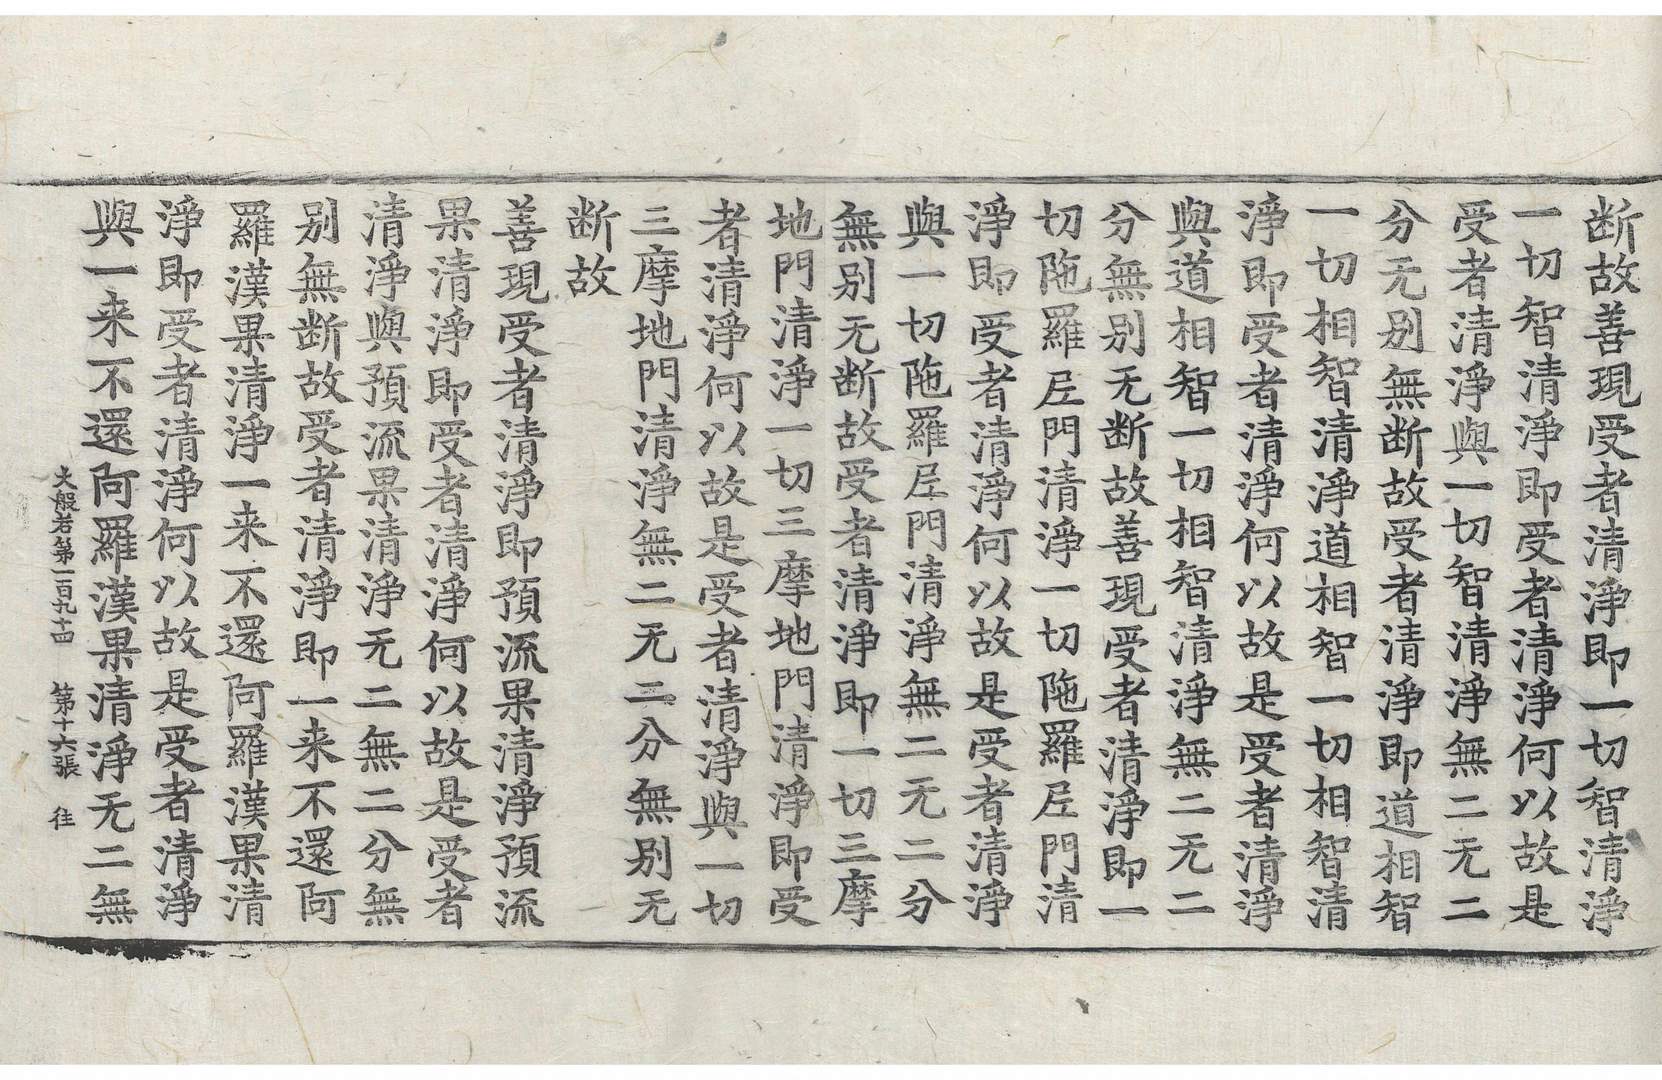 断故善現受者清淨即一切智清淨
一切智清淨即受者清淨何以故是
受者清淨與一切智清淨無二无二
分无别無断故受者清淨即道相智
一切相智清淨道相智一切相智清
淨即受者清淨何以故是受者清淨
與道相智一切相智清淨無二无二
分無别无断故善現受者清淨即一
切陁羅尼門清淨一切陁羅尼門清
淨即受者清淨何以故是受者清淨
與一切陁羅尼門清淨無二无二分
無别无断故受者清淨即一切三摩
地門清淨一切三摩地門清淨即受
者清淨何以故是受者清淨與一切
三摩地門清淨無二无二分無别无
断故
善現受者清淨即預流果清淨預流
果清淨即受者清淨何以故是受者
清淨與預流果清淨无二無二分無
别無断故受者清淨即一来不還阿
羅漢果清淨一来不還阿羅漢果清
淨即受者清淨何以故是受者清淨
與一来不還阿羅漢果清淨无二無
大般若第一百九十四 第十六張 往